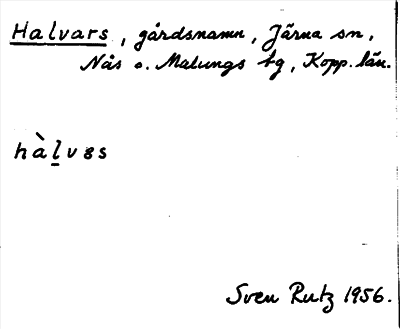 Halvars, gårdsnamn, Järna sn,
Nås o. Malungs tg, Kopp. län.
hàl̲vɞs
Sven Rutz 1956.